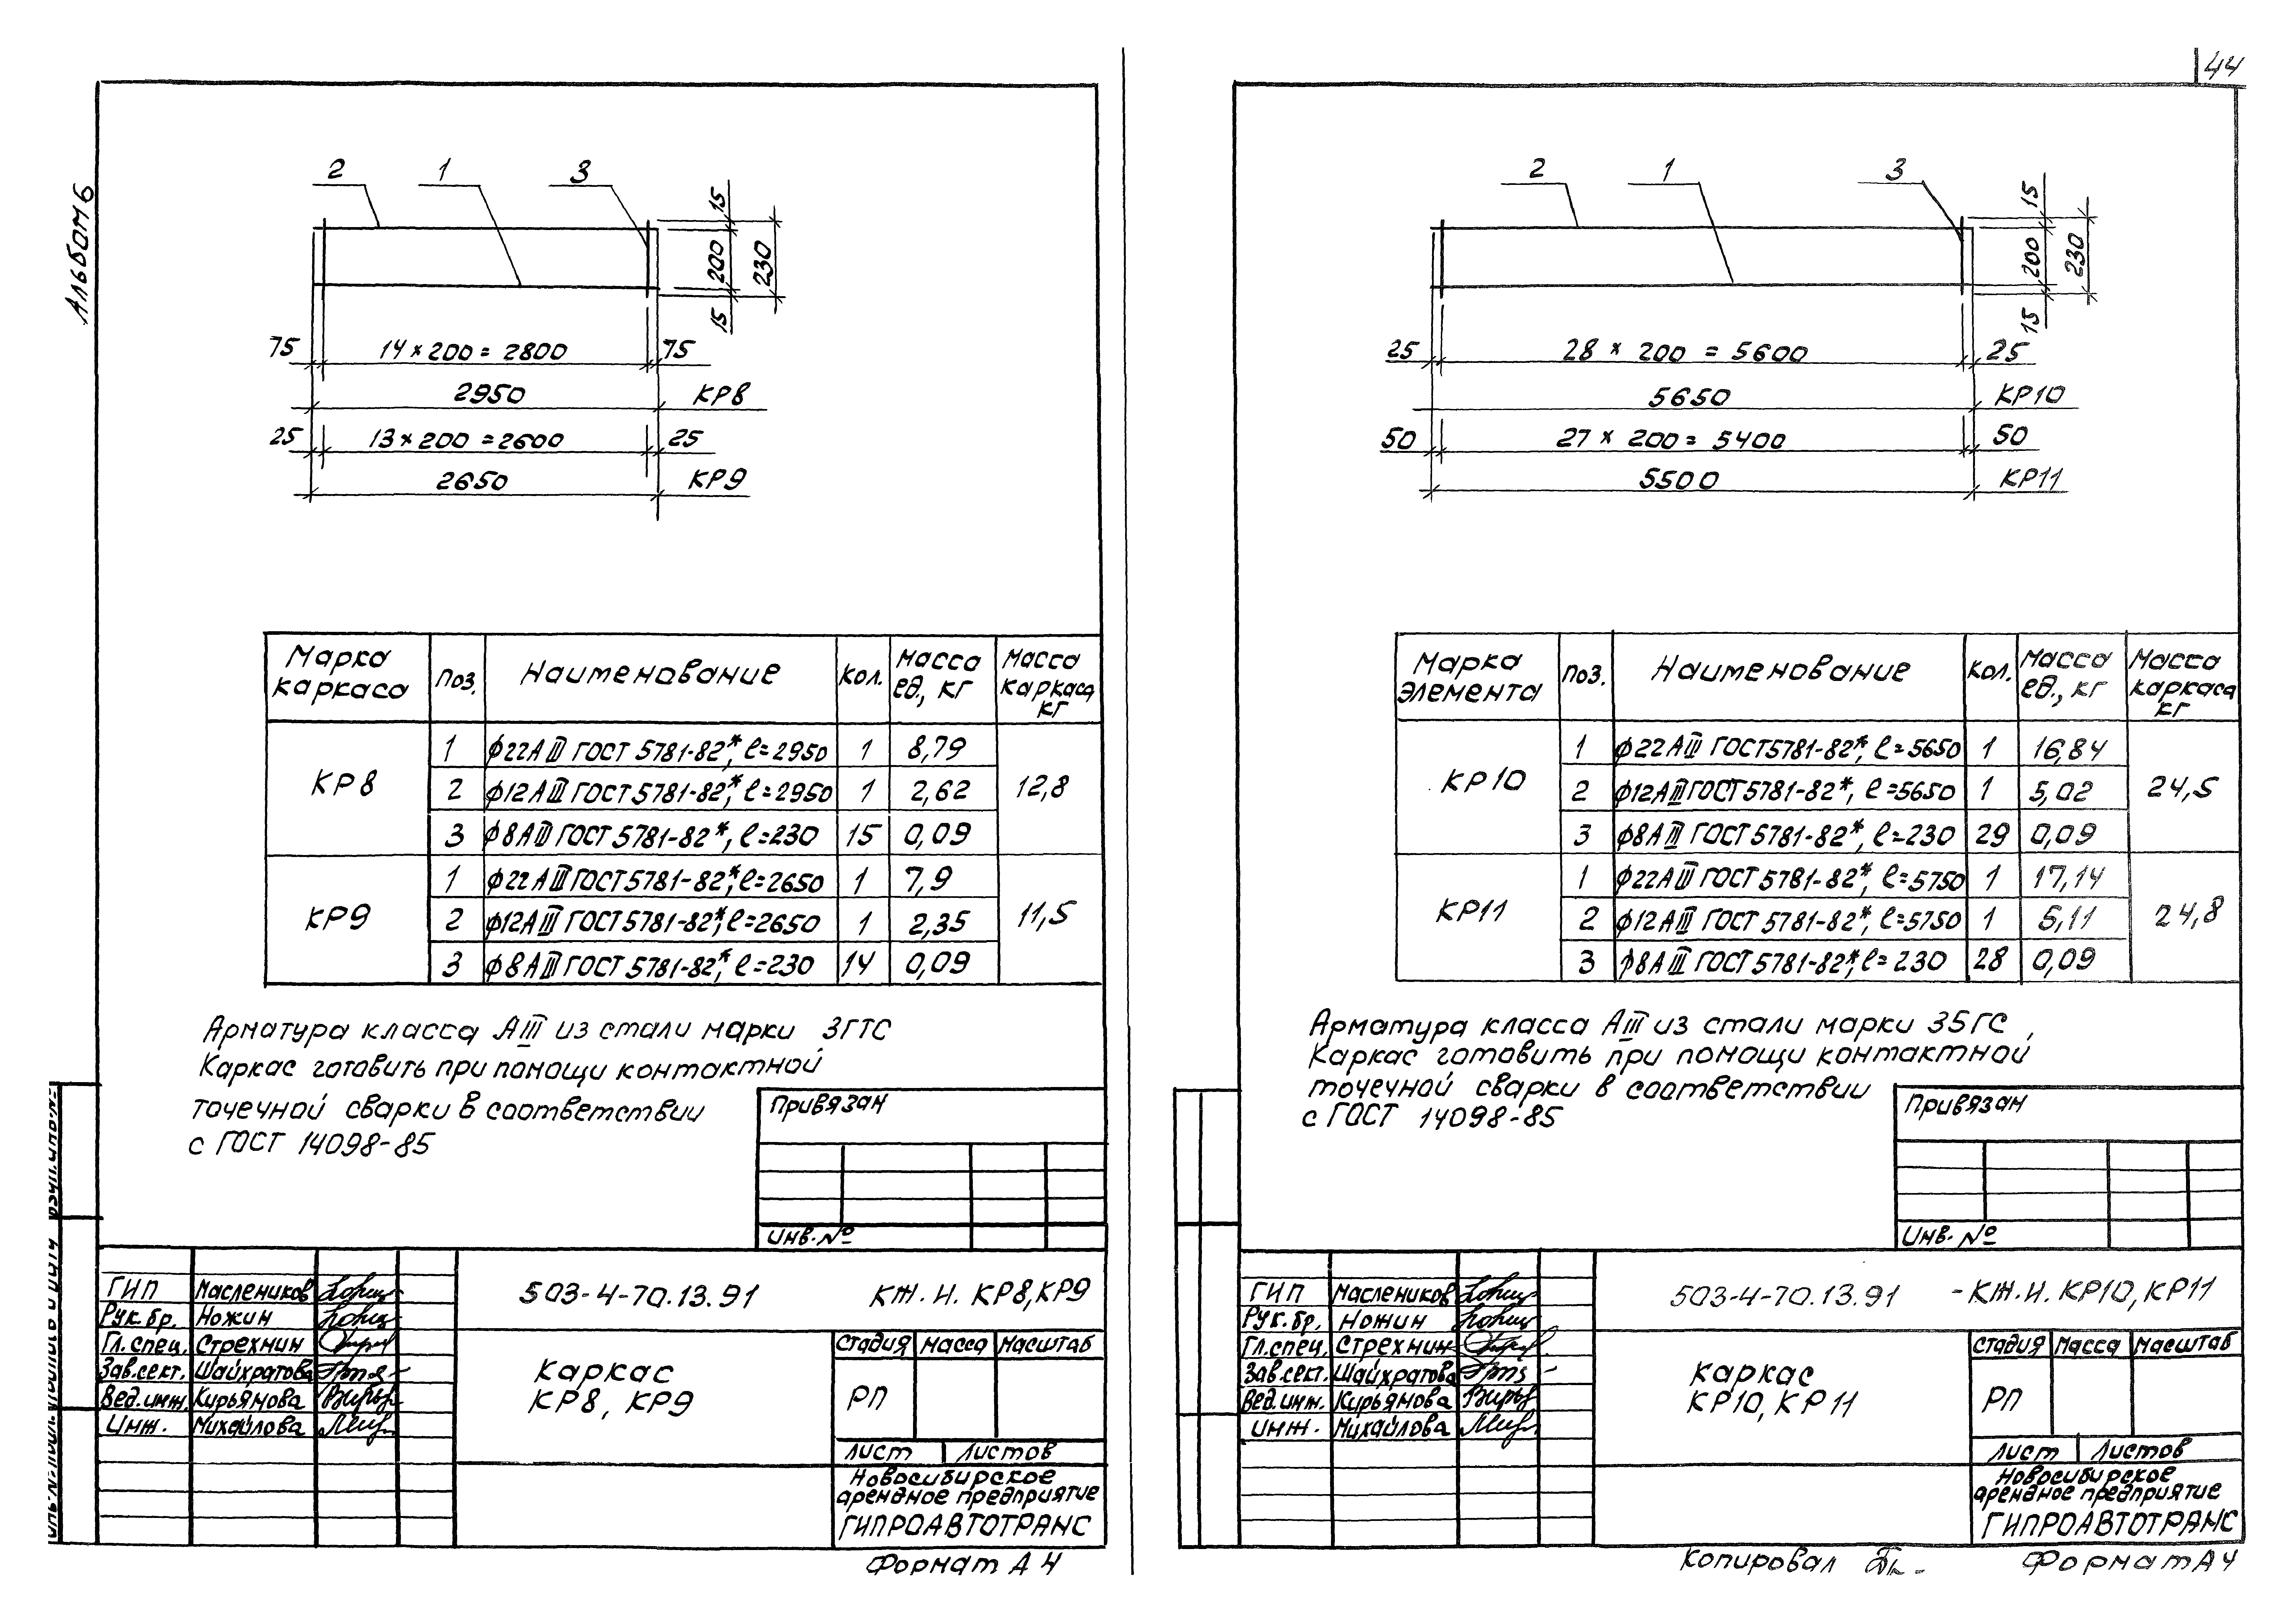 44
Альбом 6
2 1 3
15
200
230
15
75 14 × 200 = 2800 75
2950 КР8
25 13 × 200 = 2600 25
2650 КР9
Марка каркаса Поз. Наименование Кол. Масса ед., кг Масса каркаса кг
КР8 1 ф22АIII ГОСТ 5781-82*, ℓ=2950 1 8,79 12,8
2 ф12АIII ГОСТ 5781-82*, ℓ=2950 1 2,62
3 ф8АIII ГОСТ 5781-82*, ℓ=230 15 0,09
КР9 1 ф22АIII ГОСТ 5781-82*, ℓ=2650 1 7,9 11,5
2 ф12АIII ГОСТ 5781-82*, ℓ=2650 1 2,35
3 ф8АIII ГОСТ 5781-82*, ℓ=230 14 0,09
Арматура класса АIII из стали марки 3ГТС
Каркас готовить при помощи контактной
точечной сварки в соответствии
с ГОСТ 14098-85
Привязан
Инв. №
ГИП Маслеников
Рук. бр. Ножин
Гл. спец. Стрехнин
Зав. сект. Шайхратова
Вед. инж. Кирьянова
Инж. Михайлова
503-4-70.13.91 КЖ.И. КР8, КР9
Каркас
КР8, КР9
Стадия Масса Масштаб
РП
Лист Листов
Новосибирское
арендное предприятие
ГИПРОАВТОТРАНС
Формат А4
2 1 3
15
200
230
15
25 28 × 200 = 5600 25
5650 КР10
50 27 × 200 = 5400 50
5500 КР11
Марка элемента Поз. Наименование Кол. Масса ед., кг Масса каркаса кг
КР10 1 ф22АIII ГОСТ 5781-82*, ℓ=5650 1 16,84 24,5
2 ф12АIII ГОСТ 5781-82*, ℓ=5650 1 5,02
3 ф8АIII ГОСТ 5781-82*, ℓ=230 29 0,09
КР11 1 ф22АIII ГОСТ 5781-82*, ℓ=5750 1 17,14 24,8
2 ф12АIII ГОСТ 5781-82*, ℓ=5750 1 5,11
3 ф8АIII ГОСТ 5781-82*, ℓ=230 28 0,09
Арматура класса АIII из стали марки 35ГС,
Каркас готовить при помощи контактной
точечной сварки в соответствии
с ГОСТ 14098-85
Привязан
Инв. №
ГИП Маслеников
Рук. бр. Ножин
Гл. спец. Стрехнин
Зав. сект. Шайхратова
Вед. инж. Кирьянова
Инж. Михайлова
503-4-70.13.91 - КЖ.И. КР10, КР11
Каркас
КР10, КР11
Стадия Масса Масштаб
РП
Лист Листов
Новосибирское
арендное предприятие
ГИПРОАВТОТРАНС
Копировал
Формат А4